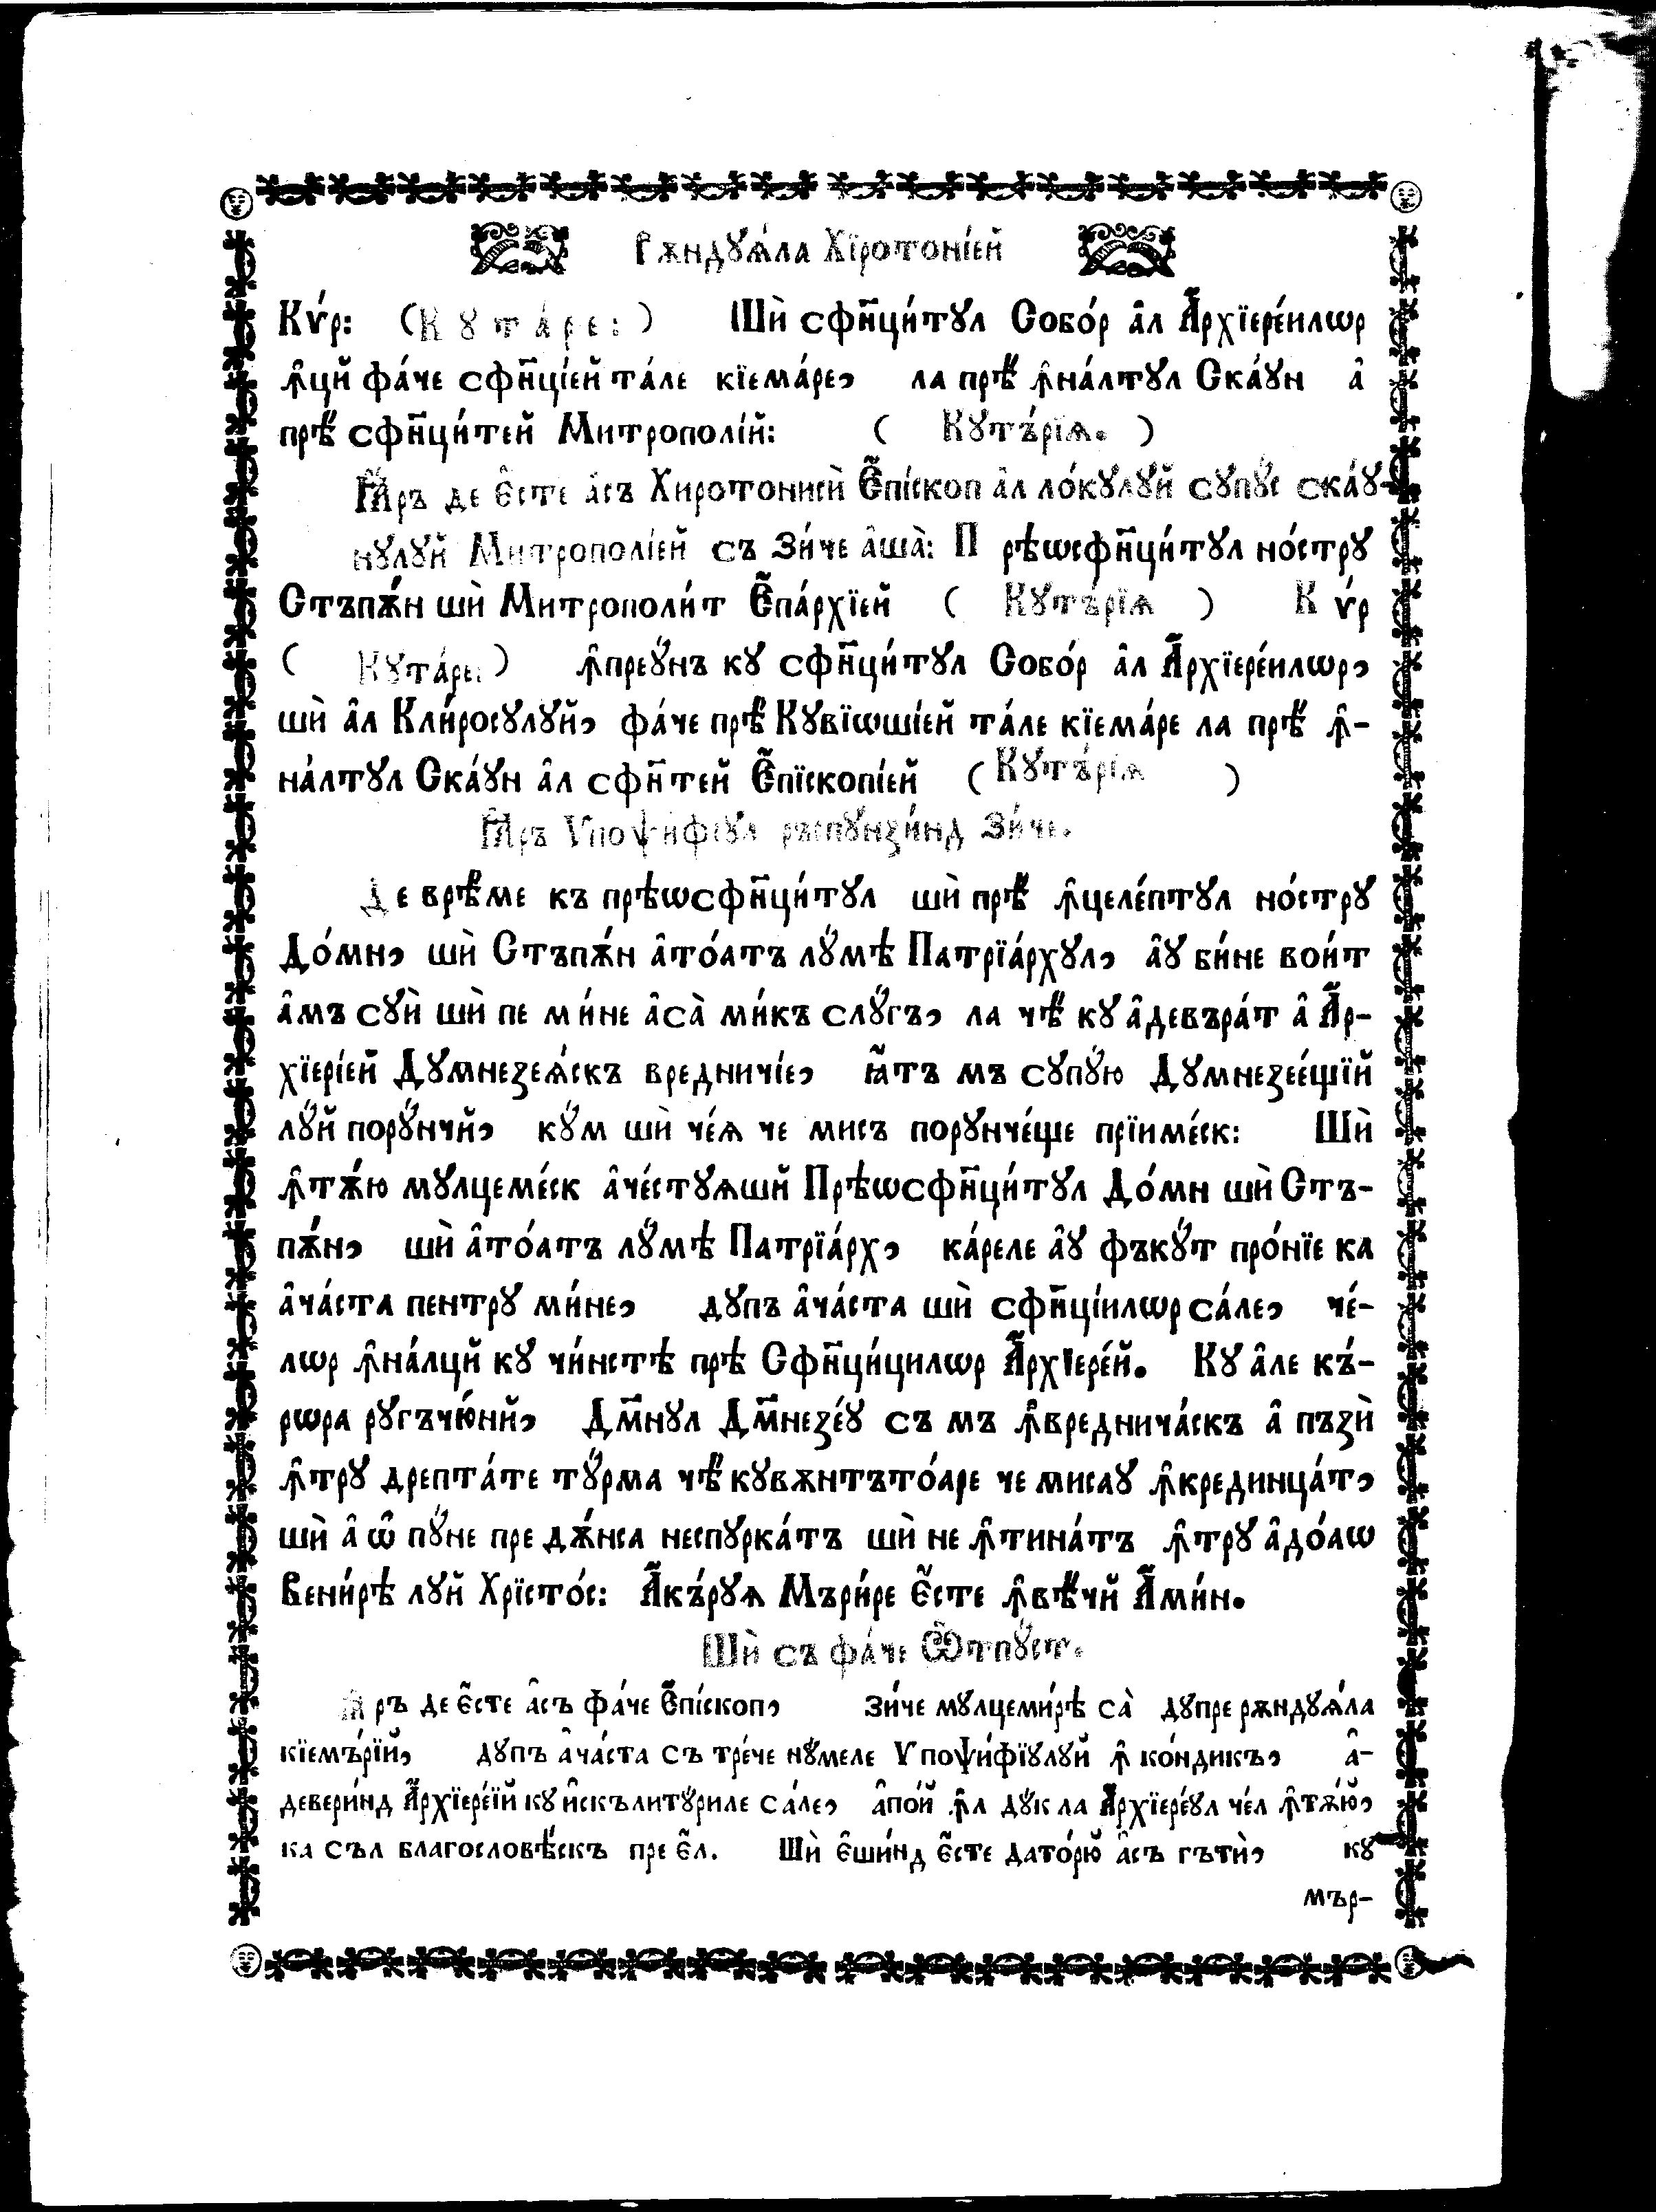 Рѫндꙋѧ́ла Хїротонїе́й
Кѵ́р: (Кꙋта́ре:) Шѝ сфн҃ци́тꙋл Собо́р а҆л А҆рхїере́илѡр
ꙟ҆цй фа́че сфн҃цїе́й та́ле кїема́ре, ла прѣ́ ꙟ҆на́лтꙋл Ска́ꙋн а҆
прѣ́ сфн҃ци́тей Митрополі́й: ( Кꙋтъ́рїѧ. )
І҆А҆ръ де є҆́сте а҆съ Хиротониси́ Є҆пі́скоп а҆л ло́кꙋлꙋй сꙋпꙋ́с ска́ꙋ-
нꙋлꙋй Митрополі́ей съ зи́че а҆ша̀: Прѣѡсфн҃ци́тꙋл но́стрꙋ
Стъпѫ́н шѝ Митрополи́т Є҆па́рхїей ( Кꙋтъ́рїѧ ) Кѵ́р
( Кꙋта́ре: ) ꙟ҆преꙋ́нъ кꙋ сфн҃ци́тꙋл Собо́р а҆л А҆рхїере́илѡр,
шѝ а҆л Кли́росꙋлꙋй, фа́че прѣ́ Кꙋвїѡшїе́й та́ле кїема́ре ла прѣ́ ꙟ҆-
на́лтꙋл Ска́ꙋн а҆л сфн҃тей Є҆пїскопі́ей ( Кꙋтъ́рїѧ )
І҆А҆ръ Ѵпоѱи́фїꙋл ръспꙋнзи́нд зи́че.
Де врѣ́ме къ прѣѡсфн҃ци́тꙋл шѝ прѣ́ ꙟ҆целе́птꙋл но́стрꙋ
До́мн, шѝ Стъпѫ́н а҆то́атъ лꙋ́мѣ Патрїа́рхꙋл, а҆ꙋ би́не вои́т
а҆мъ сꙋѝ шѝ пе ми́не а҆са̀ ми́къ слꙋ́гъ, ла чѣ́ кꙋ а҆девъра́т а҆ А҆р-
хїері́ей Дꙋмнезеѧ́скъ вредничі́е, ꙗ҆тъ мъ сꙋпꙋ́ю Дꙋмнезее́щїй
лꙋ́й порꙋ́нчй, кꙋ́м шѝ че́ѧ че мисъ порꙋнче́ще прїиме́ск: Шѝ
ꙟ҆тѫ́ю мꙋлцеме́ск а҆че́стꙋѧшй Прѣѡсфн҃ци́тꙋл До́мн шѝ Стъ-
пѫ́н, шѝ а҆то́атъ лꙋ́мѣ Патрїа́рх, ка́реле а҆ꙋ фъкꙋ́т про́нїе ка
а҆ча́ста пентрꙋ ми́не, дꙋпъ а҆ча́ста шѝ сфн҃ці́илѡр са́ле, че́-
лѡр ꙟ҆на́лцй кꙋ чи́нстѣ прѣ Сфн҃ци́цилѡр А҆рхїере́й. Кꙋ а҆ле къ́-
рѡра рꙋгъчю́нй, Дм҃нꙋл Дм҃незе́ꙋ съ мъ ꙟ҆вреднича́скъ а҆ пъзѝ
ꙟ҆трꙋ дрепта́те тꙋ́рма чѣ́ кꙋвѫнтъто́аре че мисаꙋ ꙟ҆крединца́т,
шѝ а҆ ѡ҆ пꙋ́не пре дѫ́нса неспꙋрка́тъ шѝ не ꙟ҆тина́тъ ꙟ҆трꙋ а҆до́аѡ
Вени́рѣ лꙋй Хрїсто́с: А҆къ́рꙋѧ Мъри́ре є҆́сте ꙟ҆вѣ́чй А҆ми́н.
Шѝ съ фа́че Ѿпꙋ́ст.
ꙗ҆ръ де є҆́сте а҆съ фа́че Є҆пі́скоп, зи́че мꙋлцеми́рѣ са̀ дꙋпре рѫндꙋѧ́ла
кїемъ́рїй, дꙋпъ а҆ча́ста съ тре́че нꙋ́меле Ѵпоѱи́фїꙋлꙋй ꙟ҆ ко́ндикъ, а҆-
девери́нд А҆рхїере́їй кꙋ и҆скълитꙋ́риле са́ле, а҆по́й ꙟ҆л дꙋ́к ла А҆рхїере́ꙋл че́л ꙟ҆тѫ́ю,
ка съл благословѣ́скъ пре є҆л. Шѝ є҆ши́нд є҆́сте дато́рю а҆съ гътѝ, кꙋ
мър-